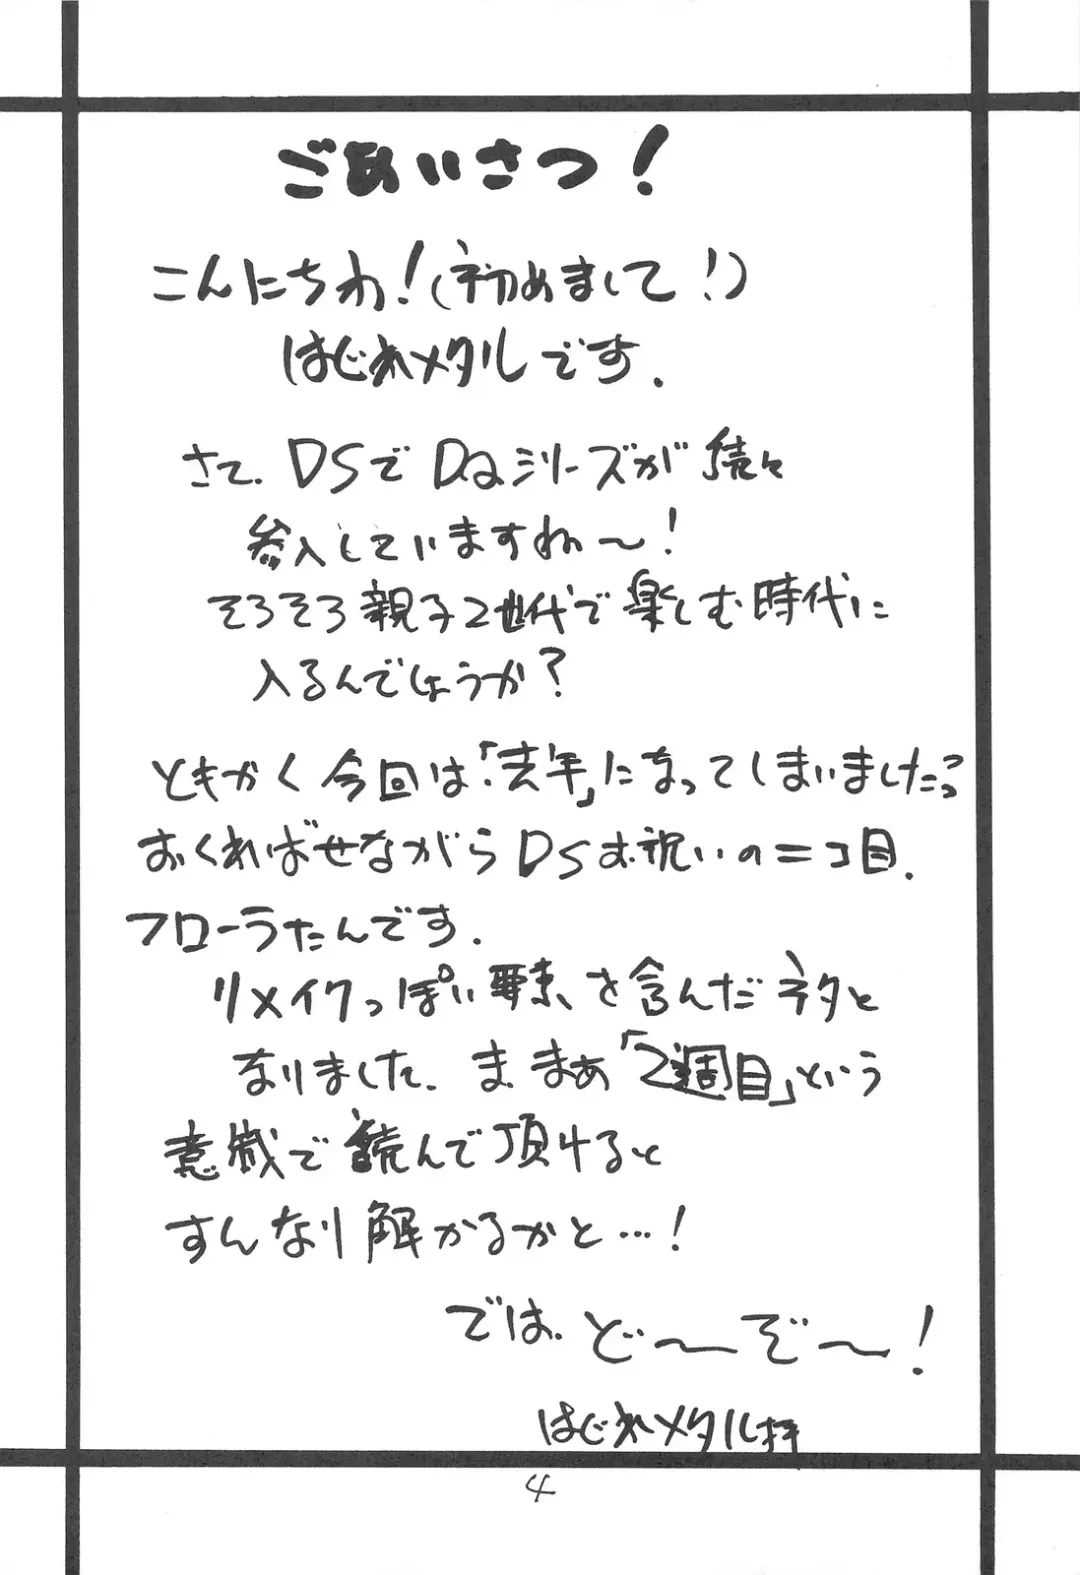 ごあいさつ!
こんにちわ!(初めまして!)
はじれメタルです.
さて、DSでDQシリーズが続々
参入していますね〜!
そろそろ親子2世代で楽しむ時代に
入るんでしょうか?
ともかく今回は「去年」になってしまいましたっ?
おくればせながらDSお祝いの二コ目.
フローラたんです.
リメイクっぽい要素を含んだネタと
なりました、ま、まぁ「2週目」という
意識で読んで頂けると
すんなり解かるかと…!
では、ど〜ぞ〜!
はじれメタル拝
4